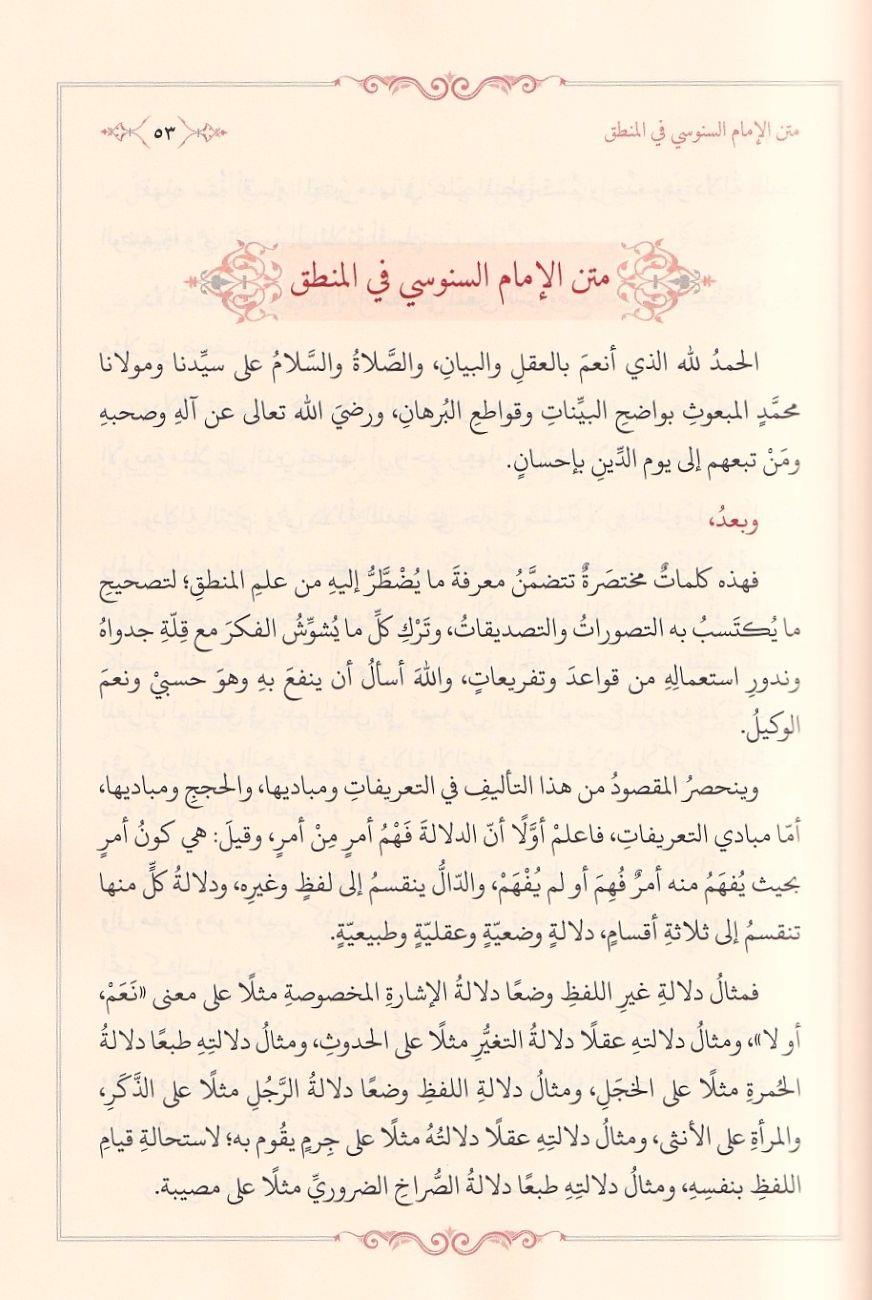 متن الإمام السنوسي في المنطق
٥٣
متن الإمام السنوسي في المنطق
الحمدُ لله الذي أنعمَ بالعقلِ والبيانِ، والصَّلاةُ والسَّلامُ على سيِّدنا ومولانا
محمَّدٍ المبعوثِ بواضحِ البيِّناتِ وقواطعِ البُرهانِ، ورضيَ الله تعالى عن آلهِ وصحبهِ
ومَنْ تبعهم إلى يوم الدِّينِ بإحسانٍ.
وبعدُ،
فهذه كلماتٌ مختصَرةٌ تتضمَّنُ معرفةَ ما يُضْطَرُّ إليهِ من علمِ المنطقِ؛ لتصحيحِ
ما يُكتَسبُ به التصوراتُ والتصديقاتُ، وتَرْكِ كلِّ ما يُشوِّشُ الفكرَ مع قِلّةِ جدواهُ
وندورِ استعمالِهِ من قواعدَ وتفريعاتٍ، واللهَ أسألُ أن ينفعَ بهِ وهوَ حسبيْ ونعمَ
الوكيلُ.
وينحصرُ المقصودُ من هذا التأليفِ في التعريفاتِ ومباديها، والحججِ ومباديها،
أمّا مبادي التعريفاتِ، فاعلمْ أوَّلًا أنّ الدلالةَ فَهْمُ أمرٍ مِنْ أمرٍ، وقيلَ: هي كونُ أمرٍ
بحيث يُفهَمُ منه أمرٌ فُهِمَ أو لم يُفْهَمْ، والدّالُّ ينقسمُ إلى لفظٍ وغيرِه، ودلالةُ كلٍّ منها
تنقسمُ إلى ثلاثةِ أقسامٍ، دلالةٍ وضعيّةٍ وعقليّةٍ وطبيعيّةٍ.
فمثالُ دلالةِ غيرِ اللفظِ وضعًا دلالةُ الإشارةِ المخصوصةِ مثلًا على معنى «نَعَمْ،
أو لا»، ومثالُ دلالتهِ عقلًا دلالةُ التغيُّرِ مثلًا على الحدوثِ، ومثالُ دلالتِهِ طبعًا دلالةُ
الحُمرةِ مثلًا على الخجَلِ، ومثالُ دلالةِ اللفظِ وضعًا دلالةُ الرَّجُلِ مثلًا على الذَّكَرِ،
والمرأةِ على الأنثى، ومثالُ دلالتِهِ عقلًا دلالتُهُ مثلًا على جِرمٍ يقُوم به؛ لاستحالةِ قيامِ
اللفظِ بنفسِهِ، ومثالُ دلالتِهِ طبعًا دلالةُ الصُّراخِ الضروريِّ مثلًا على مصيبة.